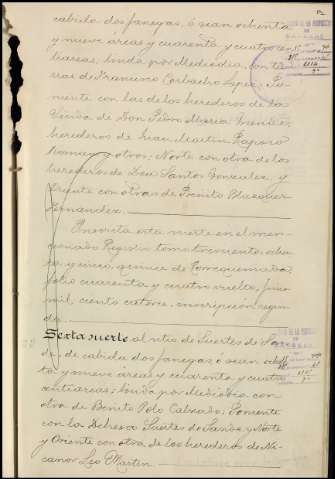 cabida dos fanegas, ó sean ochenta
y nueve areas y cuarenta y cuatro cen
tiareas, linda por Mediodia, con tie
rras de Francisco Corbacho Lopez; Po
niente con las de los herederos de la
Viuda de Don Pedro Maria
herederos de Juan Martin Raposo
y otros; Norte con otra de los
herederos de Don Santos Gonzalez, y
Oriente con otra de Benito Blazquez
Fernandez.
Inscrita esta suerte en el men-
cionado Registro tomo trescientos
y cinco, quince de Torrequemada,
folio cuarenta y cuatro vuelto, finca
mil ciento catorce, inscripción segun
da.
Sexta suerte al sitio de Suertes de
de cabida dos fanegas ó sean ochen
ta y nueve areas y cuarenta y cuatro
centiareas; linda por Mediodia con
otra de Benito Polo Cabrado, Poniente
con la Dehesa Suertes de y Norte
y Oriente con otra de los herederos de Ni-
canor Leo Martin